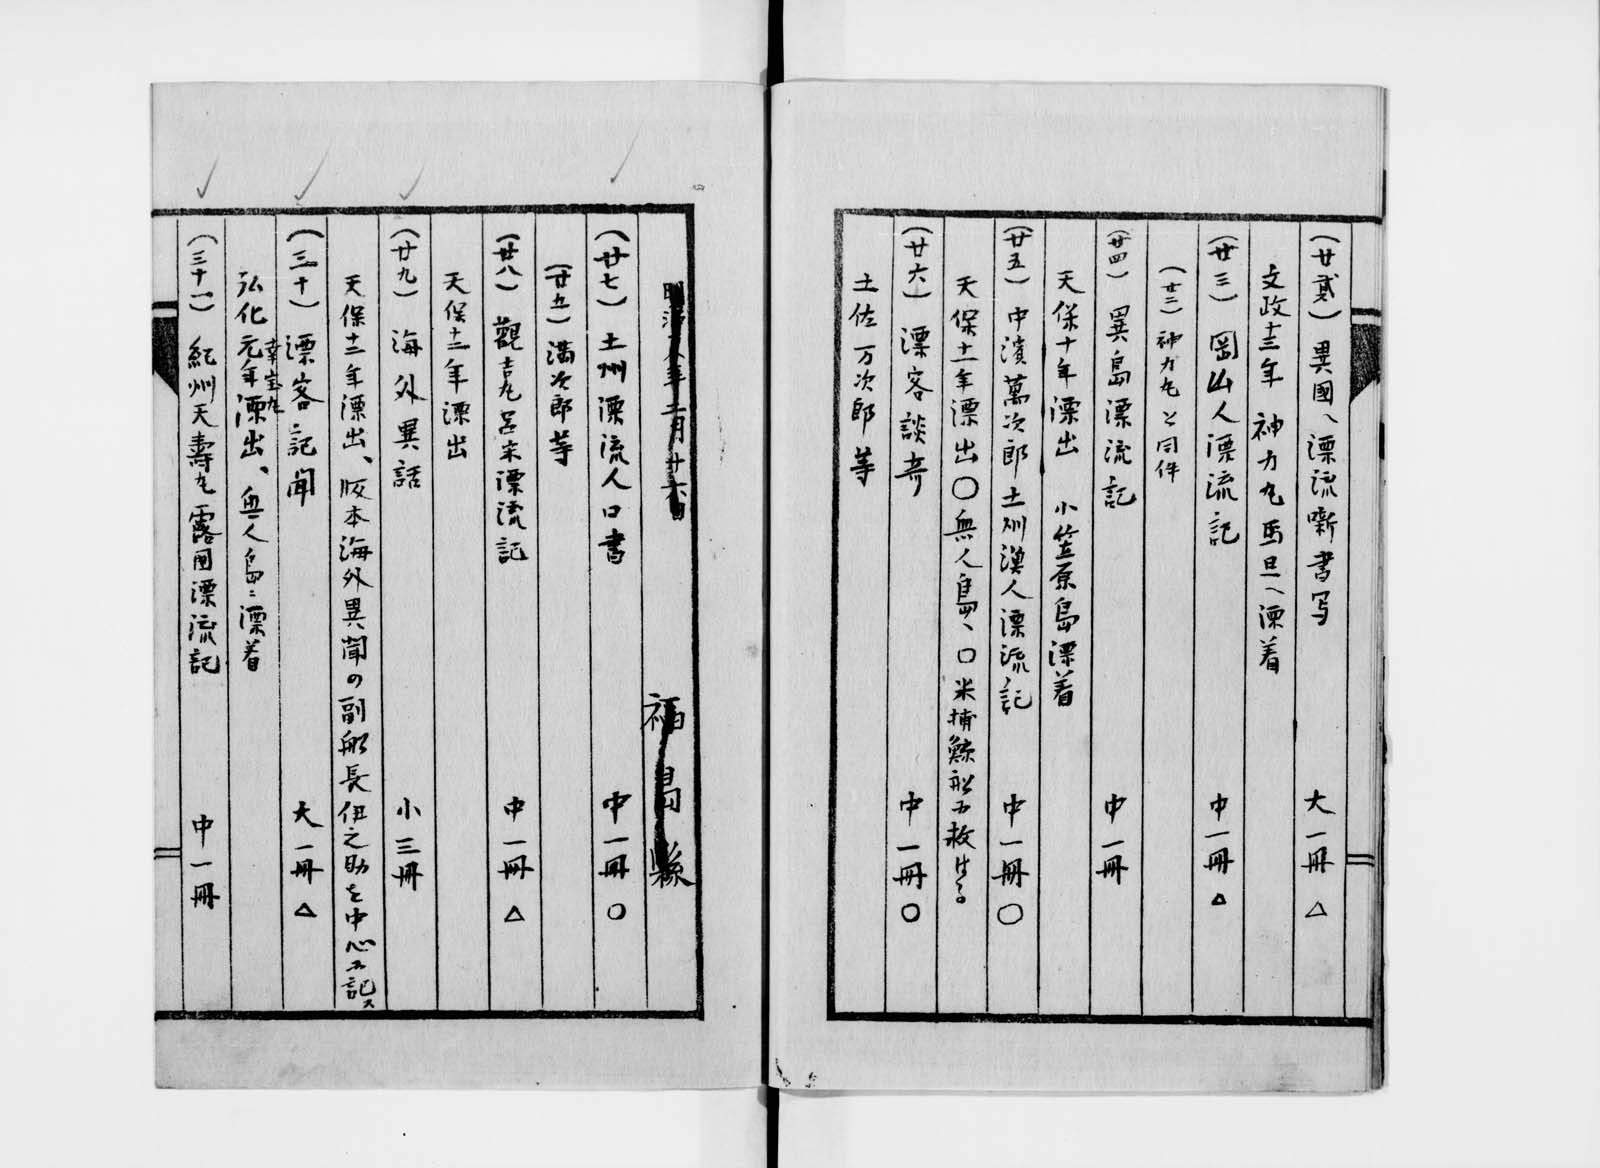 (廿貳) 異國ヘ漂流噺書写 大一冊 △
文政十三年 神力丸馬旦ヘ漂着
(廿三) 岡山人漂流記 中一冊 △
(廿二) 神力丸と同件
(廿四) 異島漂流記 中一冊
天保十年漂出 小笠原島漂着
(廿五) 中濱萬次郎土州漁人漂流記 中一冊 ○
天保十二年漂出○無人島、□米捕鯨船
(廿六) 漂客談奇 中一冊 ○
土佐万次郎等
福島縣
(廿七) 土州漂流人口書 中一冊 ○
(廿五) 満次郎等
(廿八) 觀吉丸呂宋漂流記 中一冊 △
天保十二年漂出
(廿九) 海外異話 小三冊
天保十二年漂出、版本海外異聞の副船長伊之助を中心ニ記ス
(三十) 漂客記聞 大一冊 △
弘化元年幸宝丸漂出、無人島ニ漂着
(三十一) 紀州天壽丸露国漂流記 中一冊